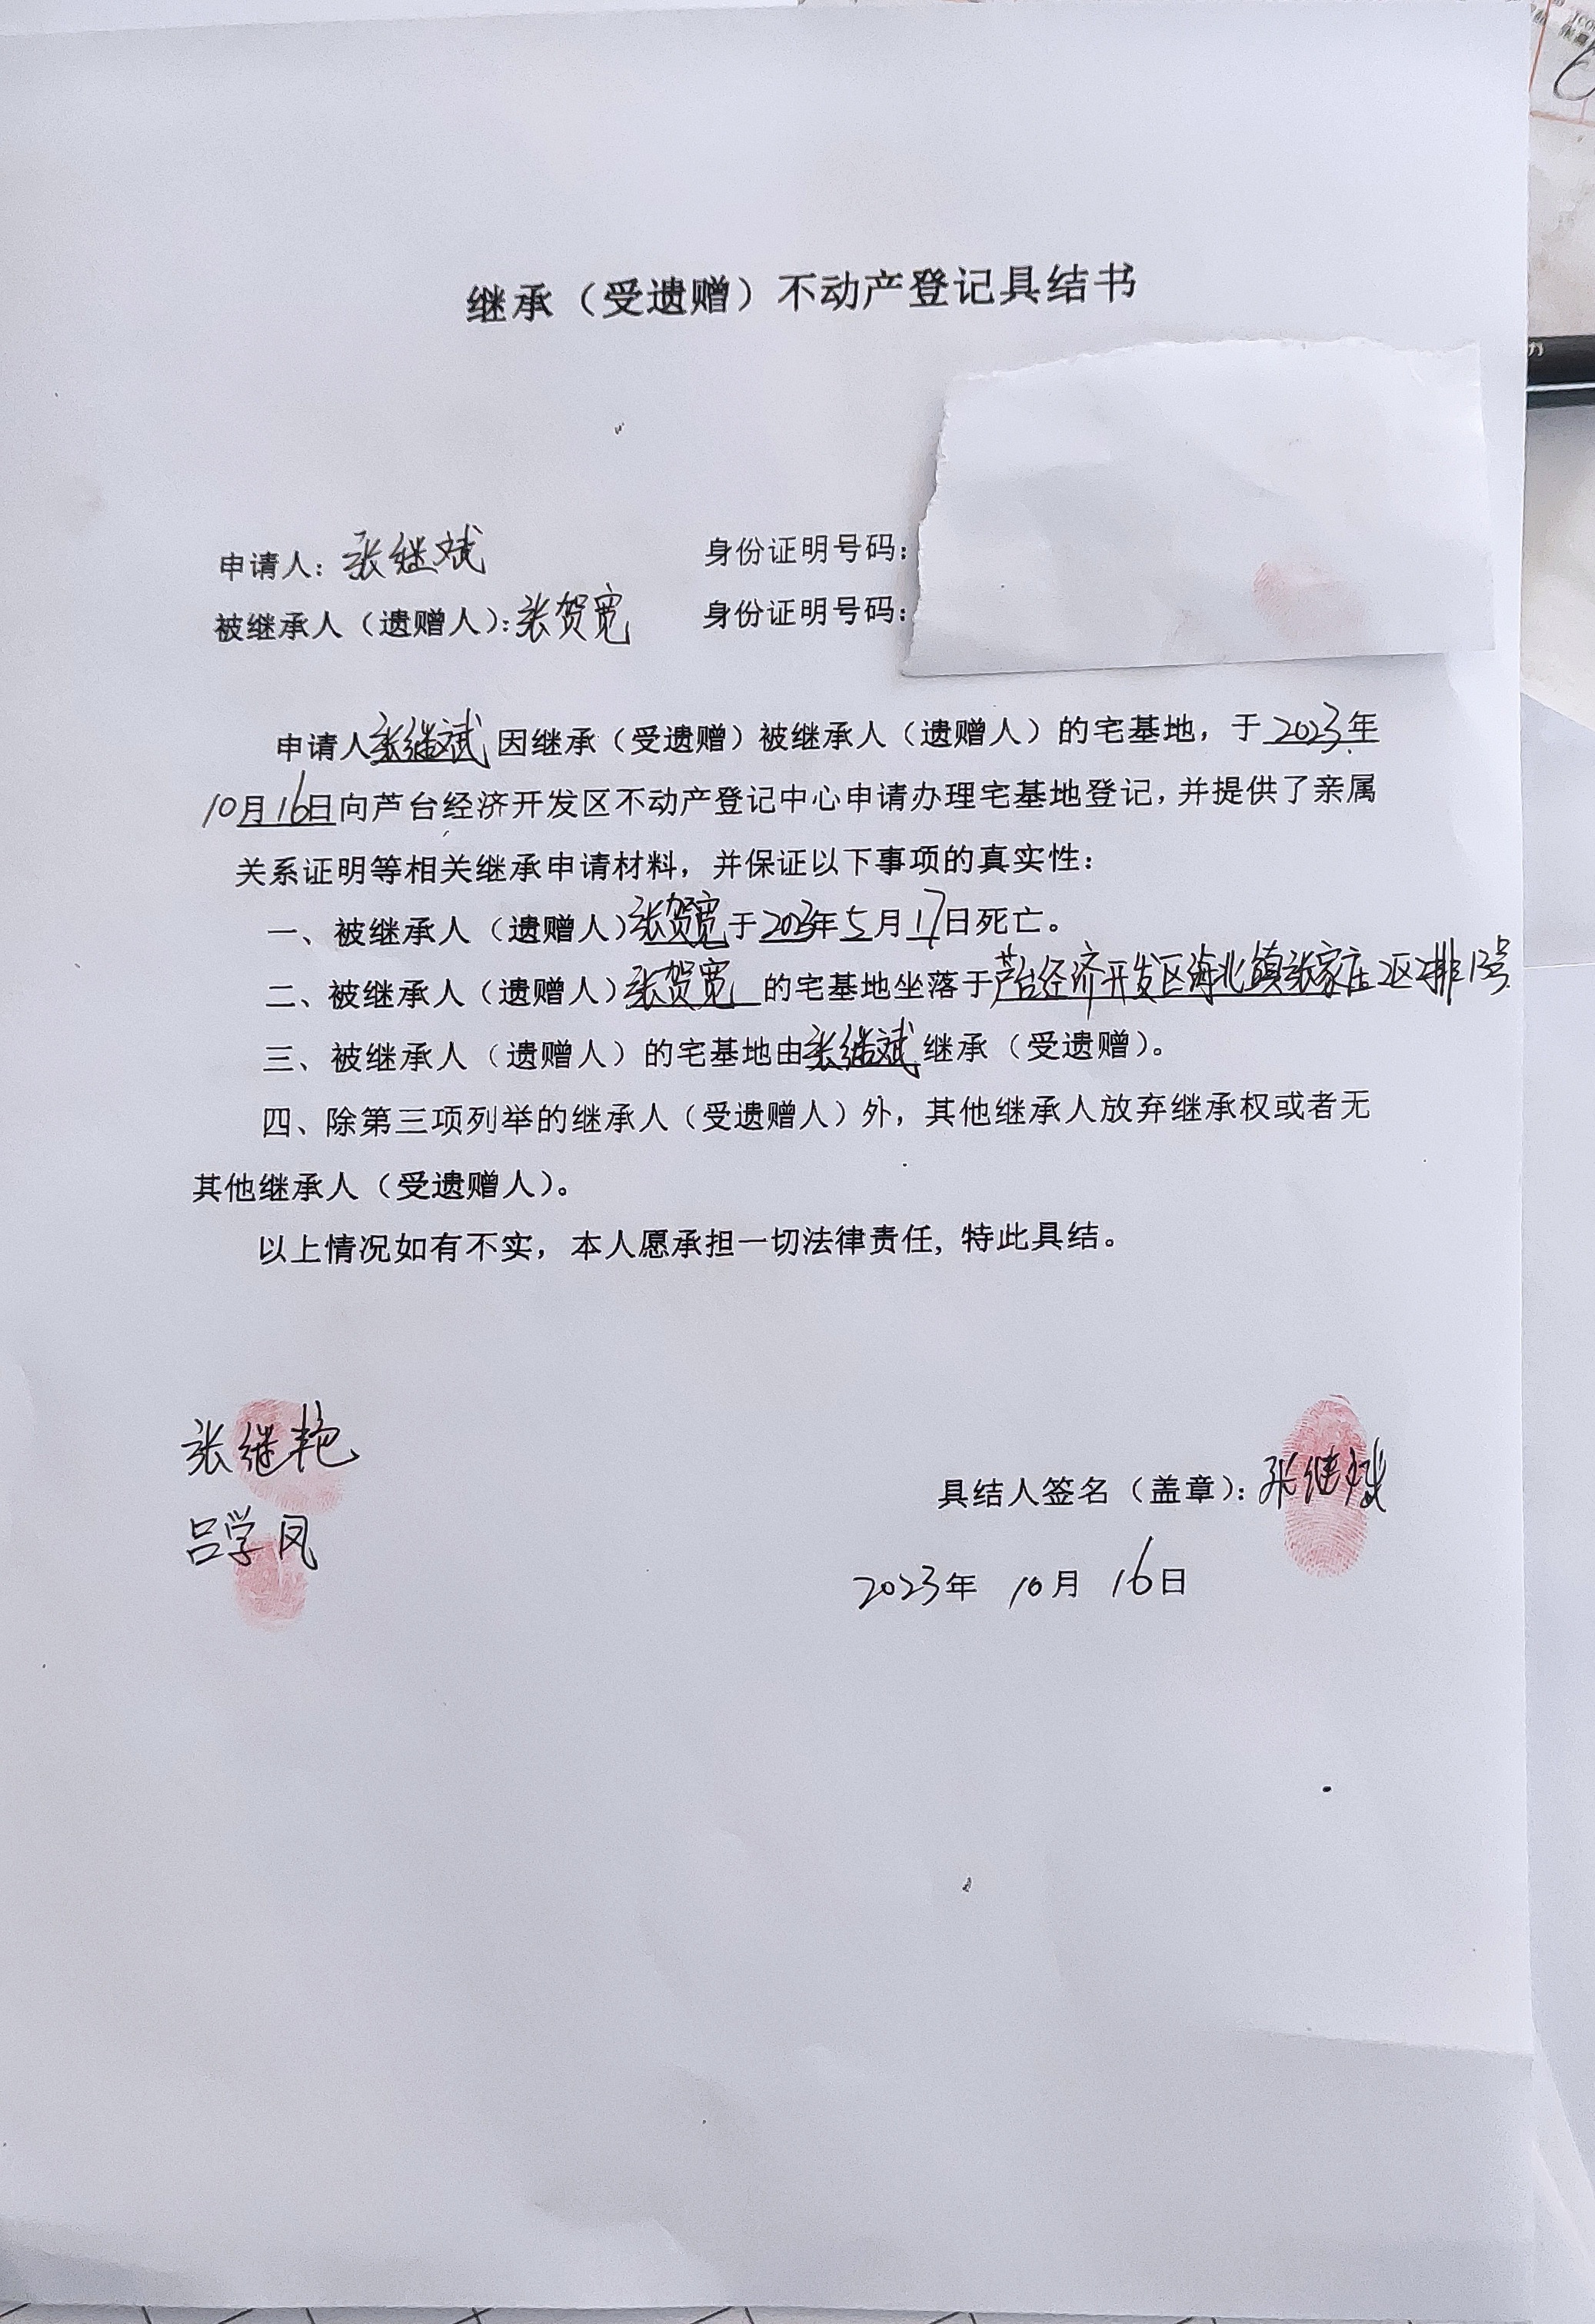 继承（受遗赠）不动产登记具结书
申请人：张继斌 身份证明号码：
被继承人（遗赠人）：张贺宽 身份证明号码：
申请人张继斌因继承（受遗赠）被继承人（遗赠人）的宅基地，于2023年
10月16日向芦台经济开发区不动产登记中心申请办理宅基地登记，并提供了亲属
关系证明等相关继承申请材料，并保证以下事项的真实性：
一、被继承人（遗赠人）张贺宽于2023年5月17日死亡。
二、被继承人（遗赠人）张贺宽的宅基地坐落于芦台经济开发区海北镇张家庄2区2排1号
三、被继承人（遗赠人）的宅基地由张继斌继承（受遗赠）。
四、除第三项列举的继承人（受遗赠人）外，其他继承人放弃继承权或者无
其他继承人（受遗赠人）。
以上情况如有不实，本人愿承担一切法律责任，特此具结。
张继艳
具结人签名（盖章）：张继斌
吕学凤
2023年 10月 16日